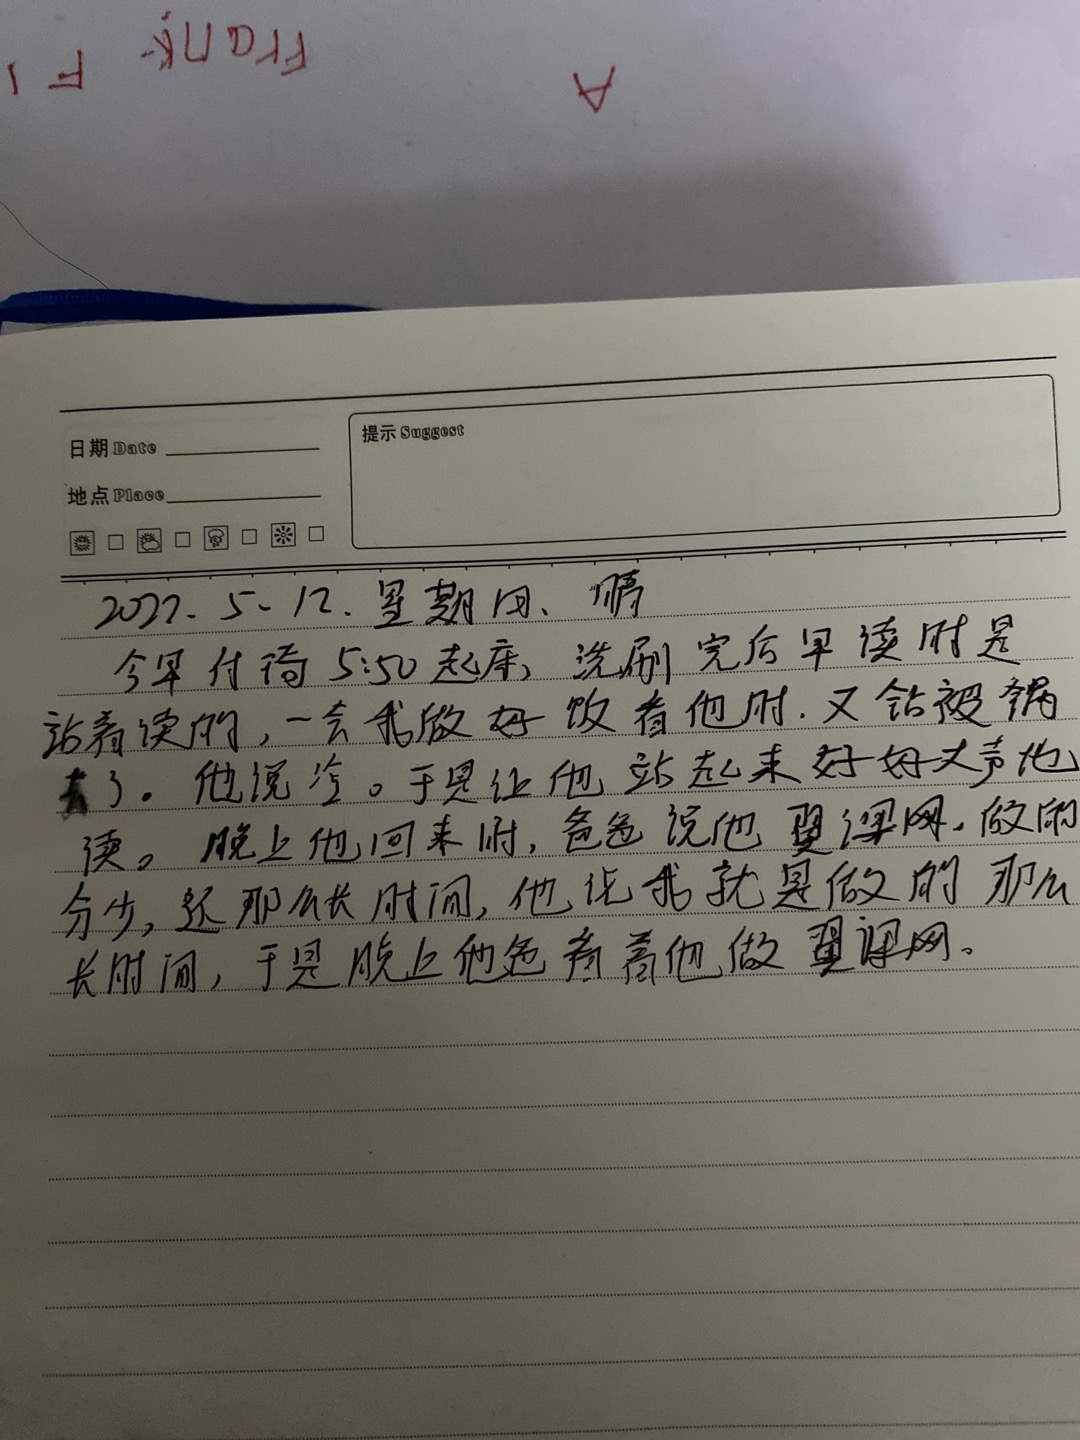 Frank F1
A
日期 Date
地点 Place
提示 Suggest
2022.5.12.星期四、晴
今早付待5:50起床,洗刷完后早读时是
站着读的,一会我做好饭看他时.又钻被窝
去了。他说冷。于是让他站起来好好大声地
读。晚上他回来时,爸爸说他翼课网.做的
分少,还那么长时间,他说我就是做的那么
长时间,于是晚上他爸看着他做翼课网。